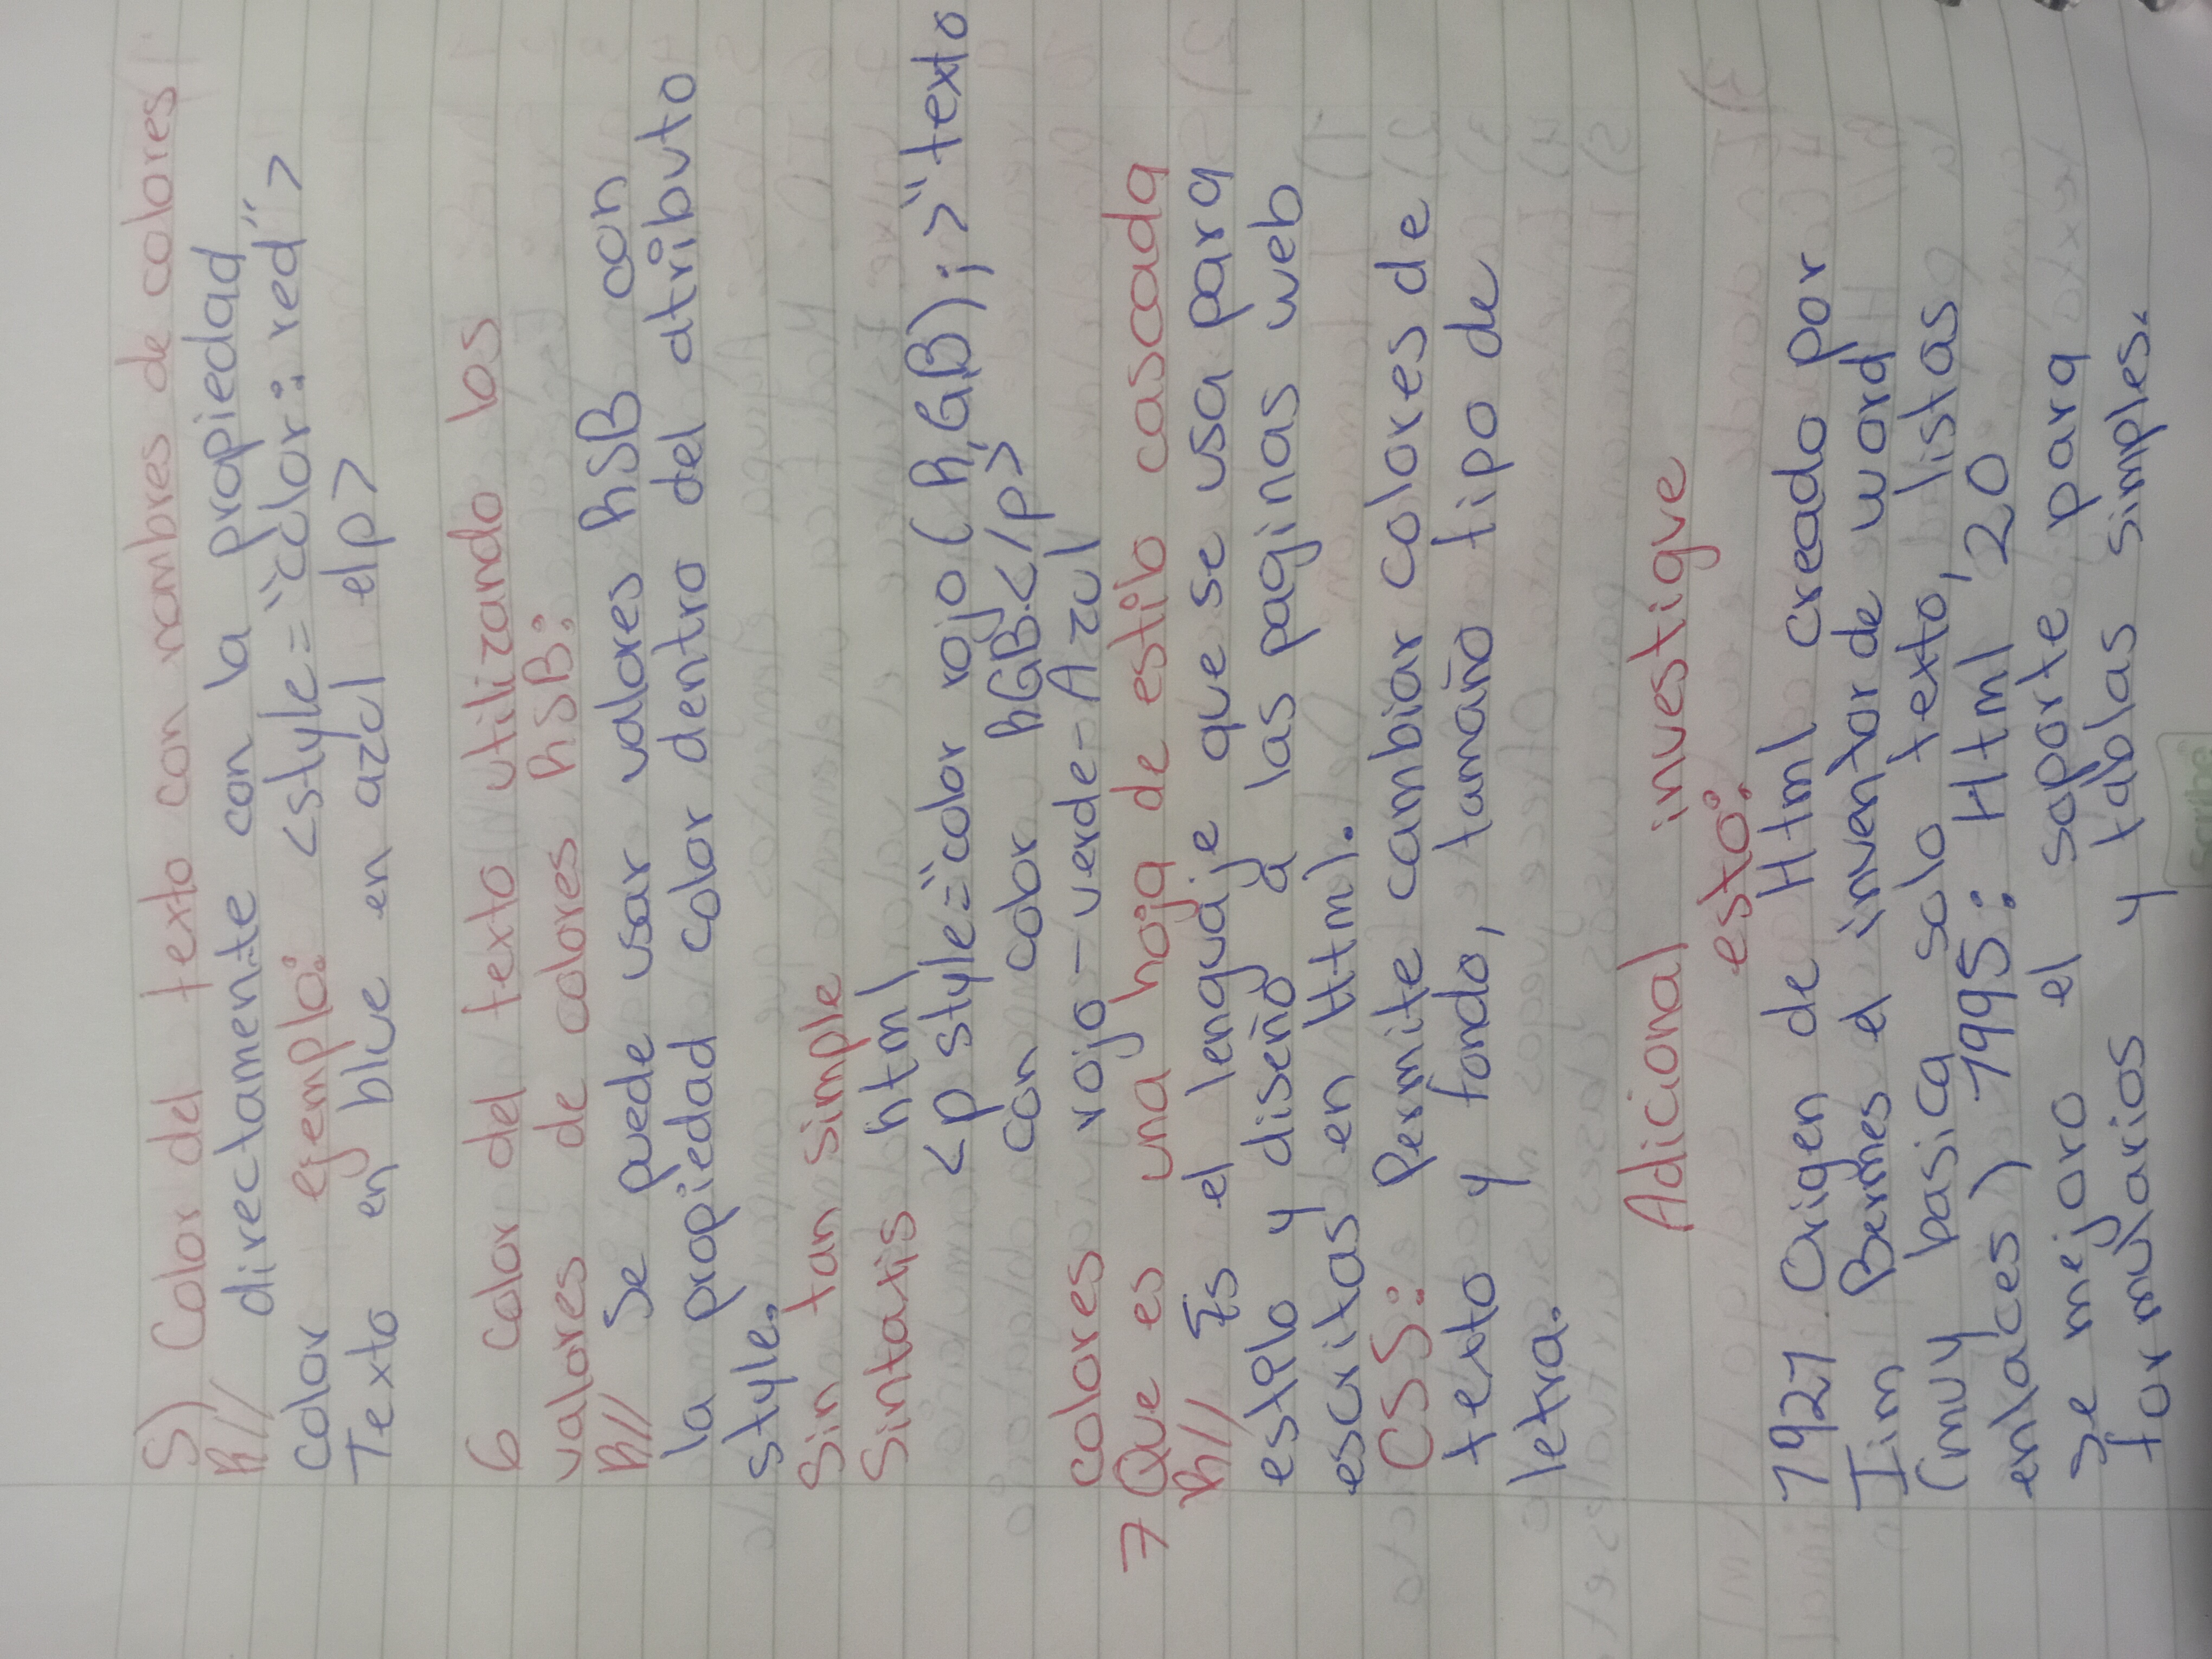 5) Color del texto con nombres de colores
R// directamente con la propiedad
color ejemplo: <style="color: red">
Texto en blue en azul elp>
6 color del texto utilizando los
valores de colores RSB:
R// Se puede usar valores RSB con
la propiedad color dentro del atributo
style.
Sin tan simple
Sintaxis html
<p style="color rojo (R,G,B);>"texto
con color RGB</p>
colores rojo-verde-Azul
7 Que es una hoja de estilo cascada
R// Es el lenguaje que se usa para
estilo y diseño a las paginas web
escritas en Html.
CSS: Permite cambiar colores de
texto y fondo, tamaño tipo de
letra.
Adicional investigue
esto:
1921 Origen de Html creado por
Tim Bernes el inventor de word
(muy basica solo texto, listas
enlaces) 1995: Html '20
se mejoro el soporte para
formularios y tablas simples.
Scribe